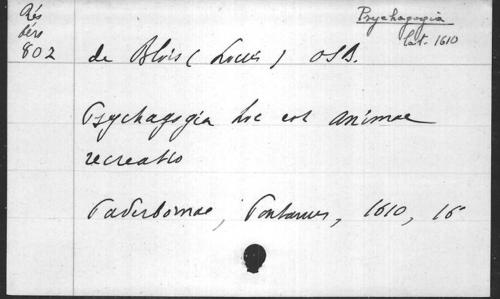 Rés
bére
802
Psychagogia
lat. 1610
de Blois (Louis) OSB.
Psychagogia hoc est animae
recreatio
Paderbornae, Pontanus, 1610, 16°